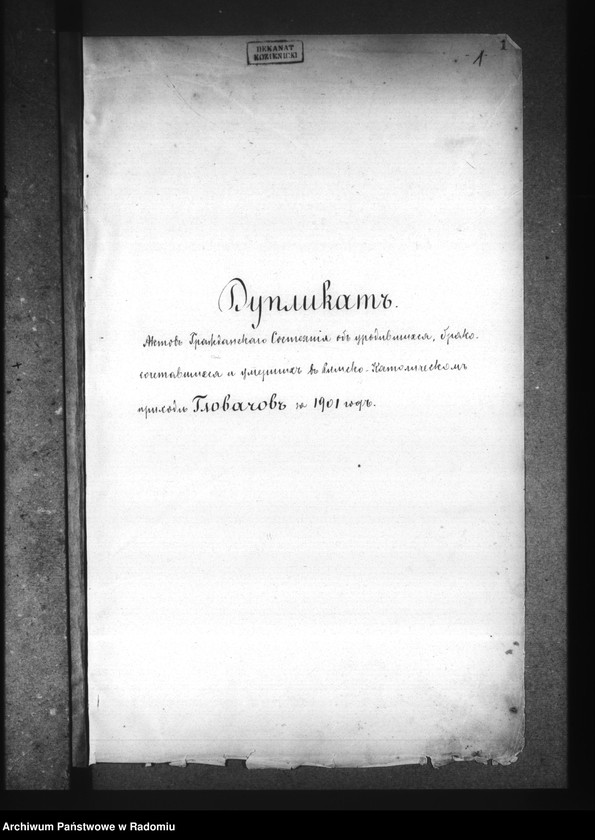 1
DEKANAT
KOZIENICKI
1
Дупликатъ.
Актовъ Гражданскаго Состоянія объ уродившихся, брако-
сочетавшихся и умершихъ въ Римско-Католическомъ
приходѣ Гловачовъ за 1901 годъ.
Archiwum Państwowe w Radomiu